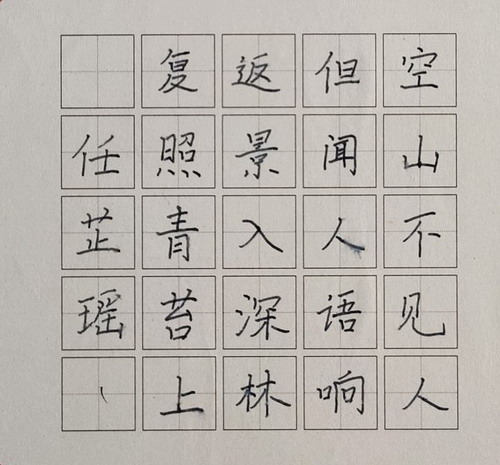 空山不见人
但闻人语响
返景入深林
复照青苔上
任芷瑶